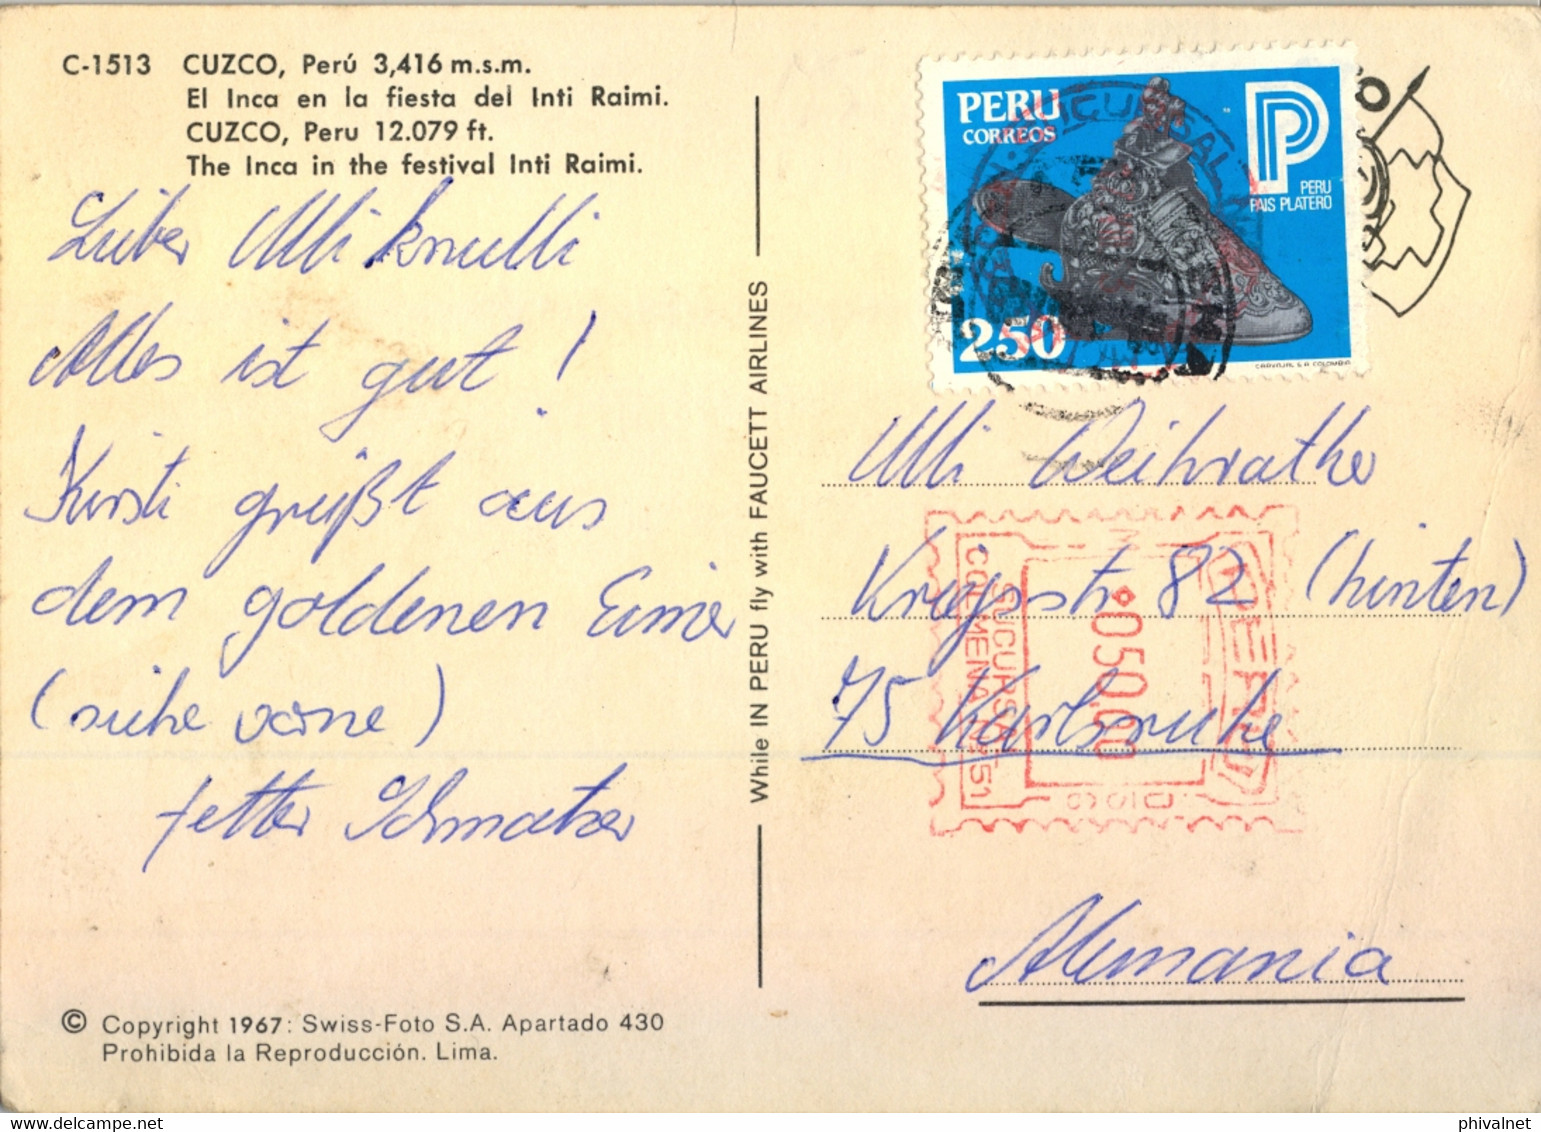 C-1513 CUZCO, Perú 3,416 m.s.m.
El Inca en la fiesta del Inti Raimi.
CUZCO, Peru 12.079 ft.
The Inca in the festival Inti Raimi.
Lieber Ulli knulli
Alles ist gut!
Kirsti grüßt aus
dem goldenen Eimer
(siehe vorne)
fetter Schmatzer
© Copyright 1967: Swiss-Foto S.A. Apartado 430
Prohibida la Reproducción. Lima.
While IN PERU fly with FAUCETT AIRLINES
PERU
CORREOS
PERU
PAIS PLATERO
250
CARVAJAL S.A. COLOMBIA
SUCURSAL
Ulli Weihrather
Kriegsstr. 82 (hinten)
75 Karlsruhe
Alemania
PERU
◇050,00
SUCURSAL
COLMENA Nº 51
phivalnet